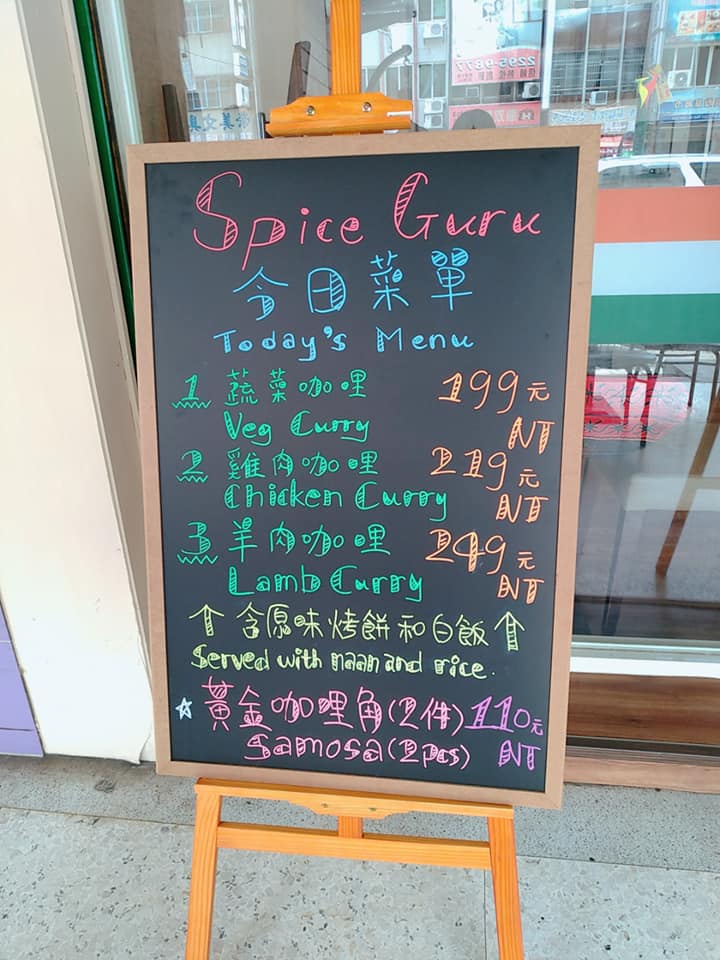 2295-9877
Spice Guru
今日菜單
Today's Menu
1 蔬菜咖哩 199元
Veg Curry NT
2 雞肉咖哩 219元
Chicken Curry NT
3 羊肉咖哩 249元
Lamb Curry NT
↑ 含原味烤餅和白飯 ↑
Served with naan and rice.
☆ 黃金咖哩角(2件) 110元
Samosa (2pcs) NT